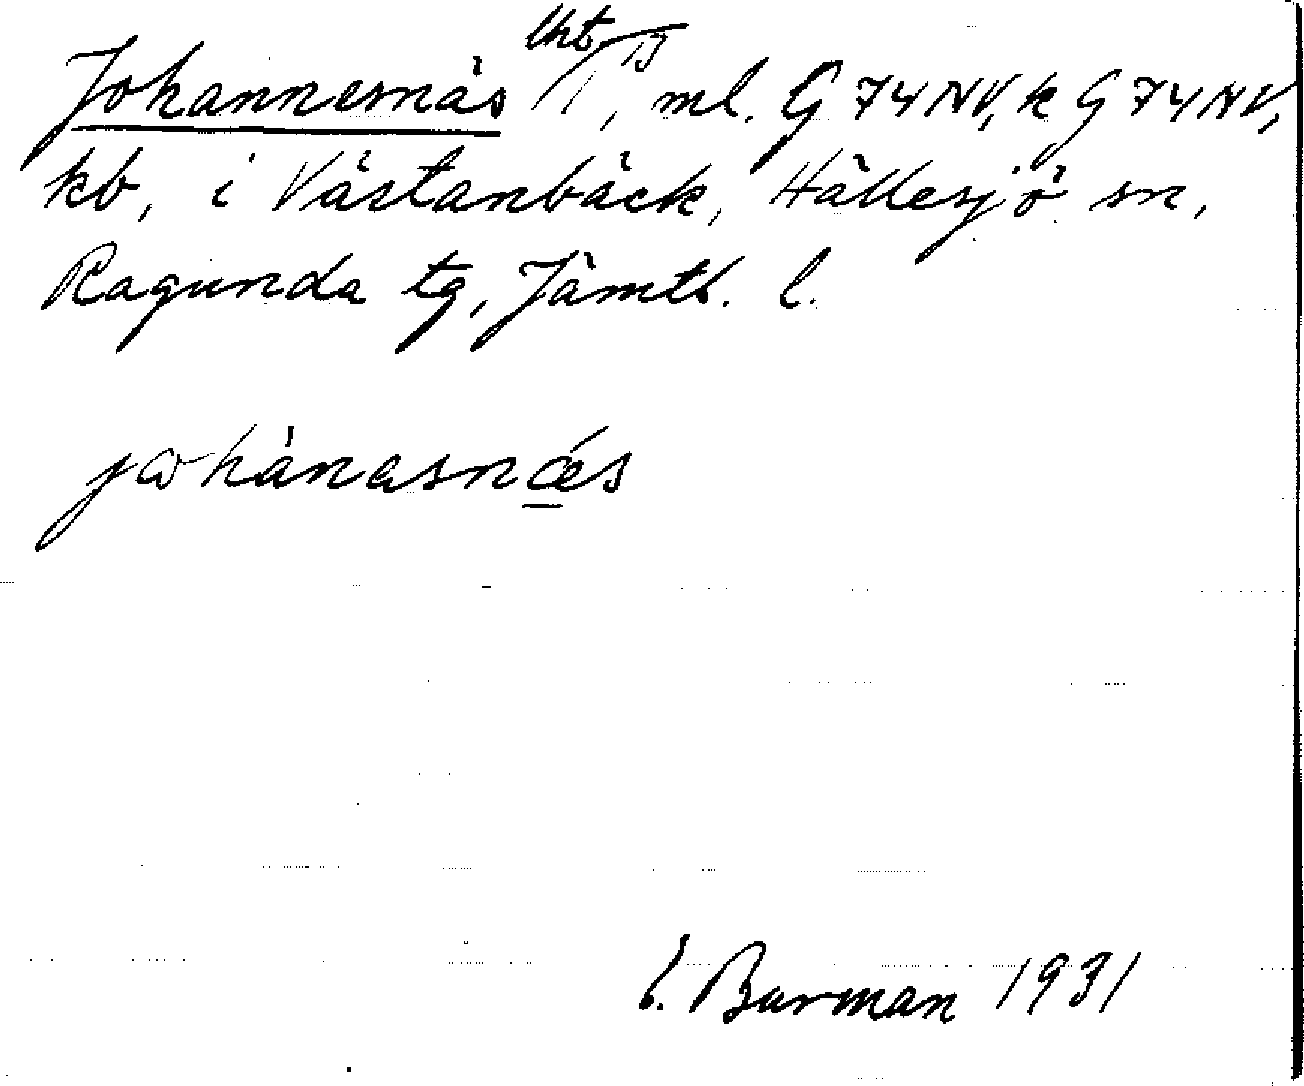 Johannesnäs, ml. G 74 NV, k G 74 NV,
kb, i Västanbäck, Hällesjö sn,
Ragunda tg, Jämtl. l.
johánasnǽ̲s
Barman 1931